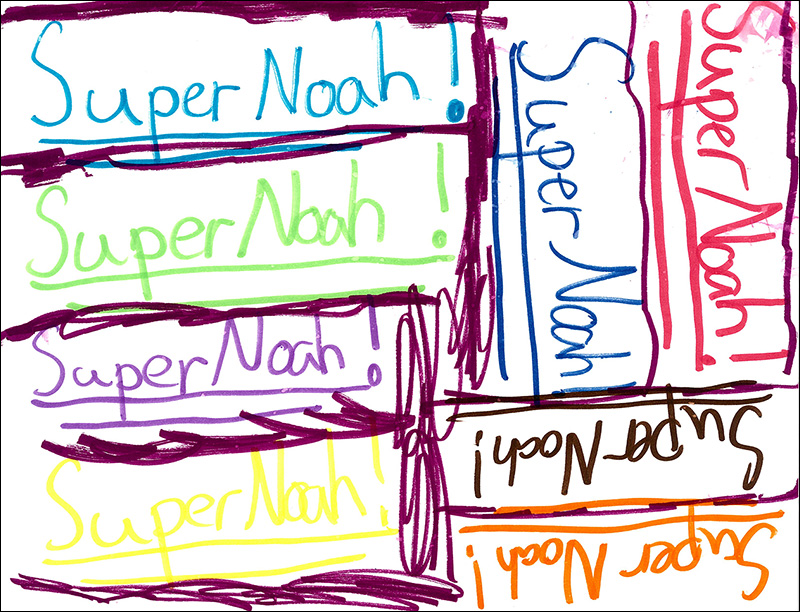 Super Noah!
Super Noah!
Super Noah!
Super Noah!
Super Noah
Super Noah!
Super Noah!
Super Noah!